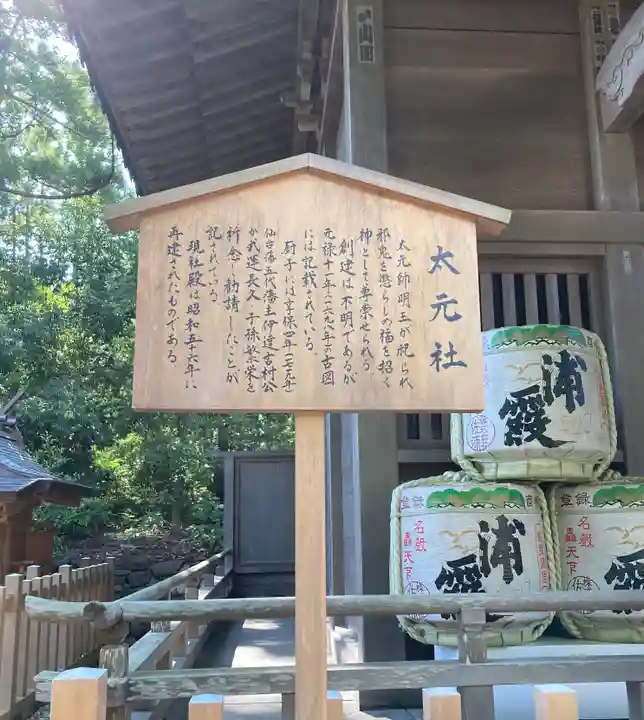 太元社
太元師明王が祀られ
邪鬼を懲らしめ福を招く
神として尊崇せられる。
創建は不明であるが
元禄十一年(一六九八年)の古図
には記載されている。
厨子には享保四年(一七一九年)
仙台藩五代藩主伊達吉村公
が武運長久、子孫繁栄を
祈念し勧請したことが
記されている。
現社殿は昭和五十六年に
再建されたものである
浦霞
登録
名醸
轟天下
浦霞
登録
名醸
轟天下
浦霞